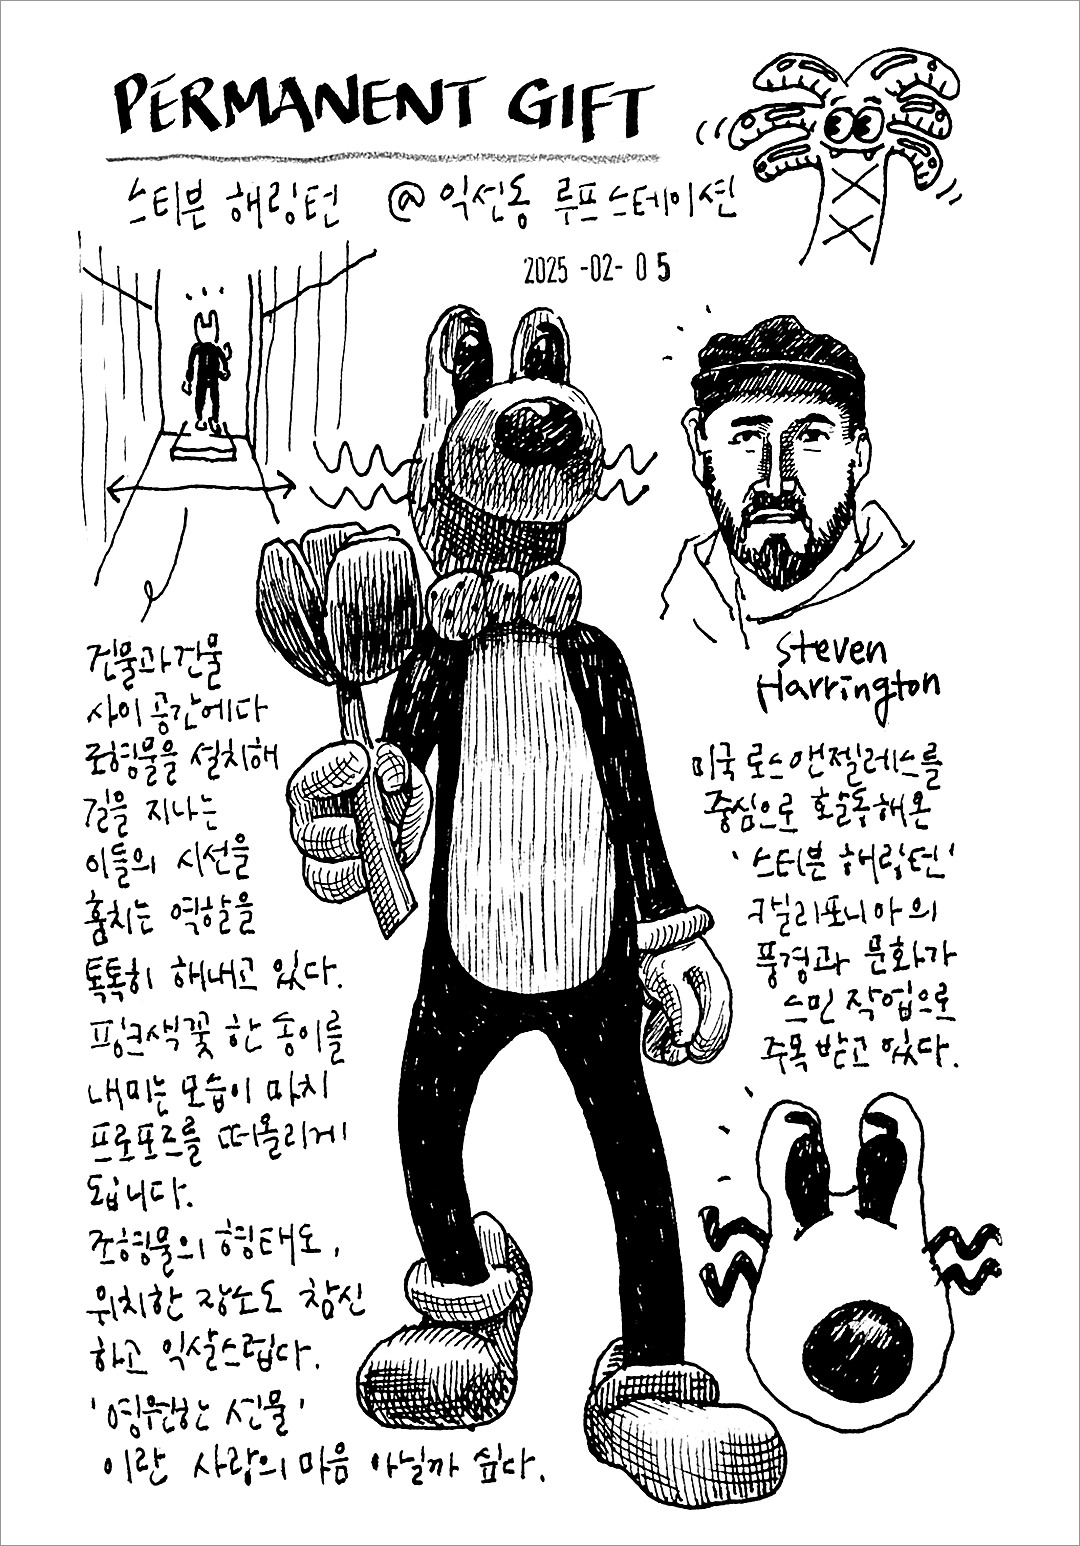 PERMANENT GIFT
스티븐 해링턴 @ 익선동 루프스테이션
2025 -02- 05
건물과 건물
사이 공간에다
조형물을 설치해
길을 지나는
이들의 시선을
훔치는 역할을
톡톡히 해내고 있다.
핑크색 꽃 한 송이를
내미는 모습이 마치
프로포즈를 떠올리게
도 됩니다.
조형물의 형태도,
위치한 장소도 참신
하고 익살스럽다.
'영원한 선물'
이란 사랑의 마음 아닐까 싶다.
Steven
Harrington
미국 로스앤젤레스를
중심으로 활동해온
'스티븐 해링턴'
캘리포니아의
풍경과 문화가
스민 작업으로
주목 받고 있다.